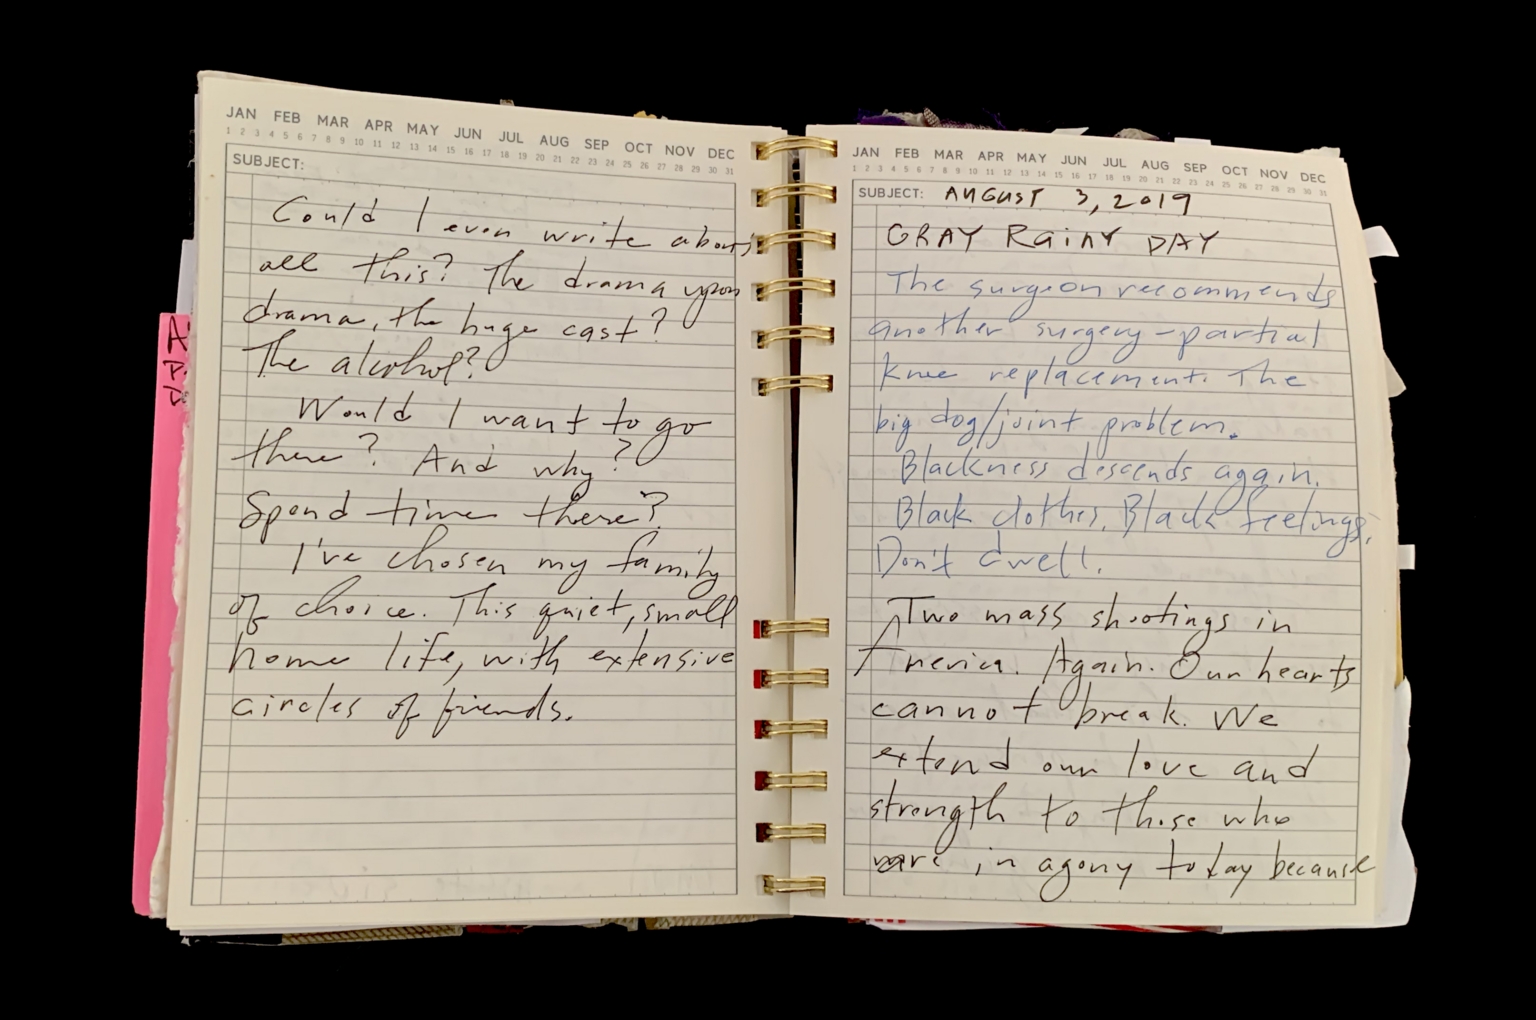 JAN FEB MAR APR MAY JUN JUL AUG SEP OCT NOV DEC
1 2 3 4 5 6 7 8 9 10 11 12 13 14 15 16 17 18 19 20 21 22 23 24 25 26 27 28 29 30 31
SUBJECT:
Could I even write about
all this? The drama upon
drama, the huge cast?
The alcohol?
Would I want to go
there? And why?
Spend time there?
I've chosen my family
of choice. This quiet, small
home life, with extensive
circles of friends.
JAN FEB MAR APR MAY JUN JUL AUG SEP OCT NOV DEC
1 2 3 4 5 6 7 8 9 10 11 12 13 14 15 16 17 18 19 20 21 22 23 24 25 26 27 28 29 30 31
SUBJECT: AUGUST 3, 2019
GRAY RAINY DAY
The surgeon recommends
another surgery - partial
knee replacement. The
big dog/joint problem.
Blackness descends again.
Black clothes. Black feelings.
Don't dwell.
Two mass shootings in
America. Again. Our hearts
cannot break. We
extend our love and
strength to those who
are in agony today because